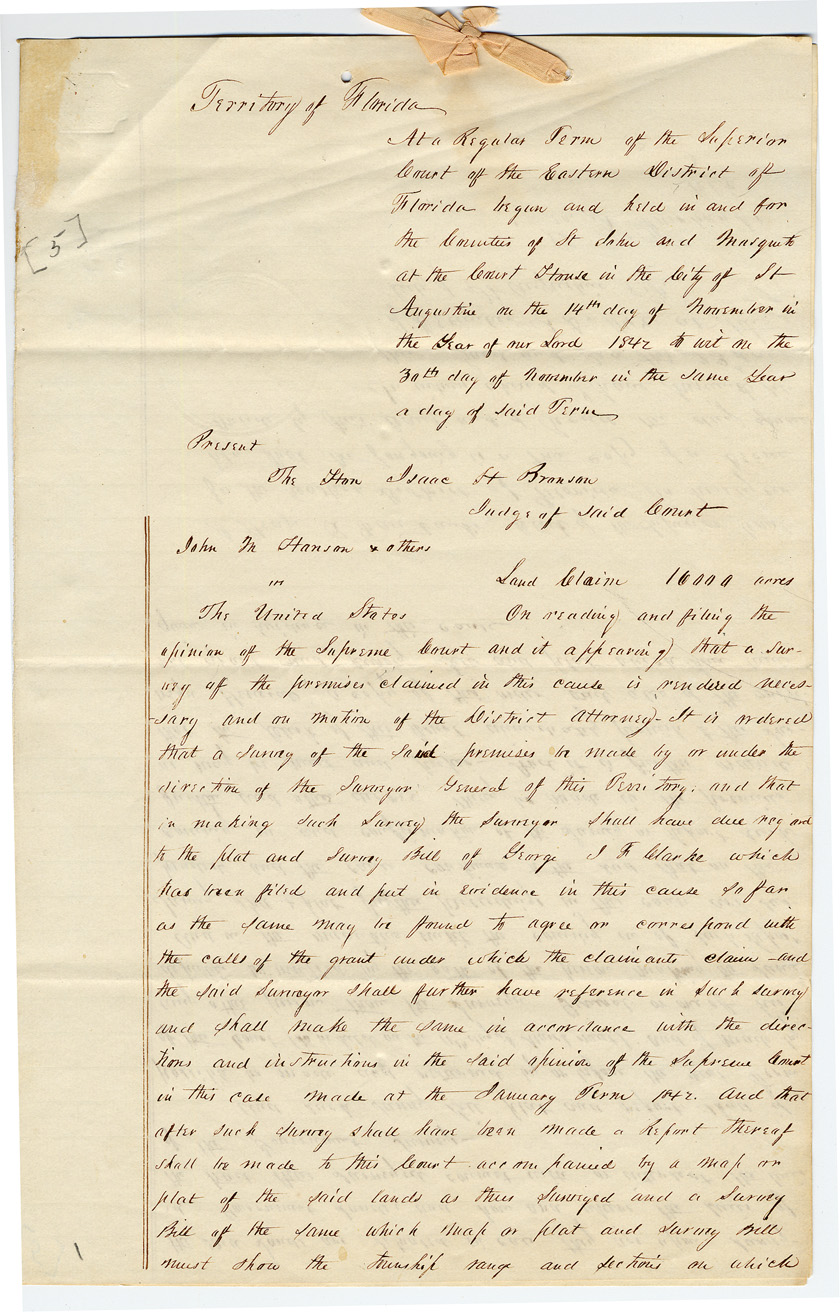 Territory of Florida
At a Regular Term of the Superior
Court of the Eastern District of
Florida begun and held in and for
the Counties of St John and Musquito
at the Court House in the City of St
Augustine on the 14th day of November in
the Year of our Lord 1842 to wit on the
30th day of November in the same Year
a day of said Term
[5]
Present
The Hon Isaac H Bronson
Judge of said Court
John M Hanson & others
vs Land Claim 16000 acres
The United States On reading and filing the
opinion of the Supreme Court and it appearing that a sur-
vey of the premises claimed in this cause is rendered neces-
-sary and on motion of the District Attorney - It is ordered
that a survey of the said premises be made by or under the
direction of the Surveyor General of this Territory. and that
in making such Survey the Surveyor shall have due regard
to the plat and Survey Bill of George I F Clarke which
has been filed and put in evidence in this cause so far
as the same may be found to agree or correspond with
the calls of the grant under which the claimants claim - and
the said Surveyor shall further have reference in such survey
and shall make the same in accordance with the direc-
tions and instructions in the said opinion of the Supreme Court
in this case made at the January Term 1842. And that
after such survey shall have been made a Report thereof
shall be made to this Court accompanied by a map or
plat of the said lands as thus Surveyed and a Survey
Bill of the same which map or plat and survey Bill
must show the township range and sections on which